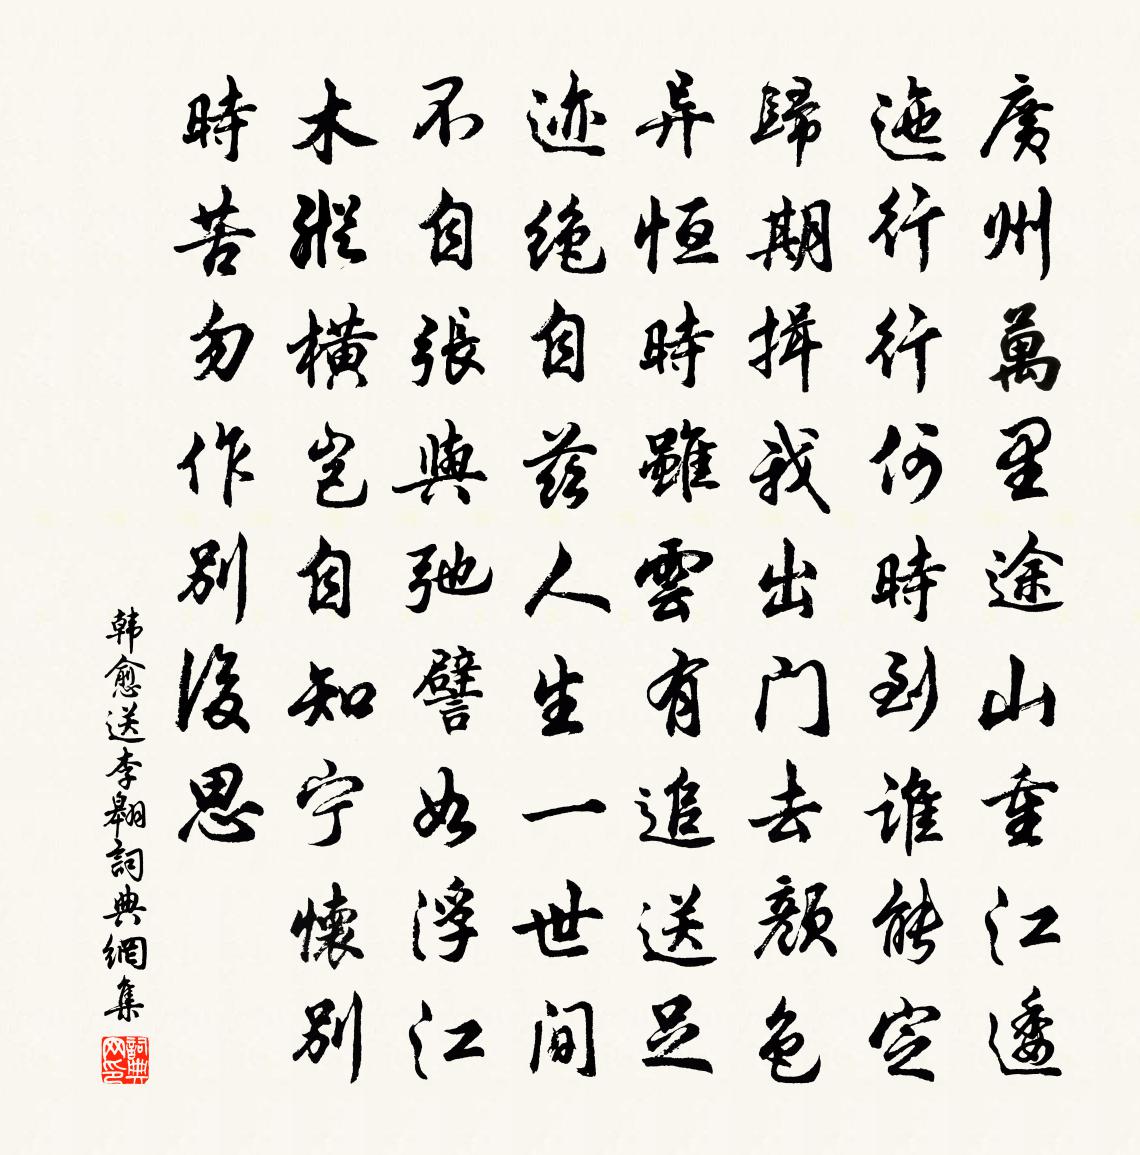 廣州萬里途山重江逶
迤行行何時到誰能定
歸期揖我出门去顔色
异恒時雖雲有追送足
迹绝自兹人生一世间
不自張與弛譬如浮江
木縱横岂自知宁懷别
時苦勿作别後思
韩愈送李翱詞典網集
詞典
网印